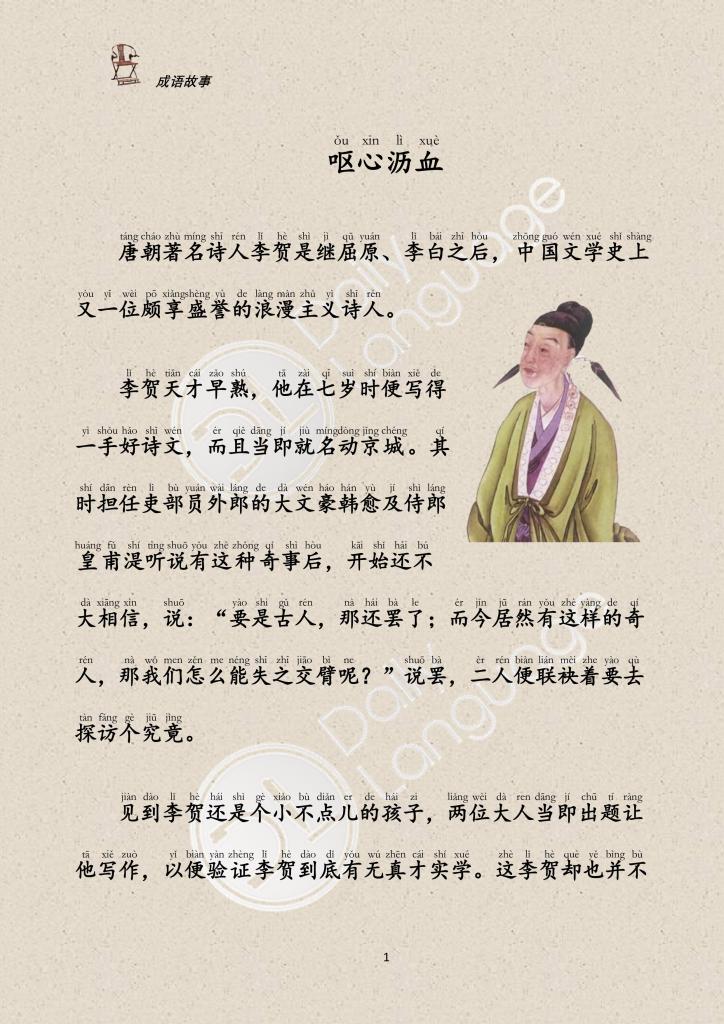 成语故事
ǒu xīn lì xuè
呕心沥血
táng cháo zhù míng shī rén lǐ hè shì jì qū yuán lǐ bái zhī hòu zhōng guó wén xué shǐ shàng
唐朝著名诗人李贺是继屈原、李白之后，中国文学史上
yòu yī wèi pō xiǎng shèng yù de làng màn zhǔ yì shī rén
又一位颇享盛誉的浪漫主义诗人。
lǐ hè tiān cái zǎo shú tā zài qī suì shí biàn xiě de
李贺天才早熟，他在七岁时便写得
yì shǒu hǎo shī wén ér qiě dāng jí jiù míng dòng jīng chéng qí
一手好诗文，而且当即就名动京城。其
shí dān rèn lì bù yuán wài láng de dà wén háo hán yù jí shì láng
时担任吏部员外郎的大文豪韩愈及侍郎
huáng fǔ shí tīng shuō yǒu zhè zhǒng qí shì hòu kāi shǐ hái bú
皇甫湜听说有这种奇事后，开始还不
dà xiāng xìn shuō yào shì gǔ rén nà hái bà le ér jīn jū rán yǒu zhè yàng de qí
大相信，说：“要是古人，那还罢了；而今居然有这样的奇
rén nà wǒ men zěn me néng shī zhī jiāo bì ne shuō bà èr rén biàn lián mèi zhe yào qù
人，那我们怎么能失之交臂呢？”说罢，二人便联袂着要去
tàn fǎng gè jiū jìng
探访个究竟。
jiàn dào lǐ hè hái shì gè xiǎo bù diǎn er de hái zi liǎng wèi dà ren dāng jí chū tí ràng
见到李贺还是个小不点儿的孩子，两位大人当即出题让
tā xiě zuò yǐ biàn yàn zhèng lǐ hè dào dǐ yǒu wú zhēn cái shí xué zhè lǐ hè què yě bìng bù
他写作，以便验证李贺到底有无真才实学。这李贺却也并不
1
DL Daily Language
DL Daily Language